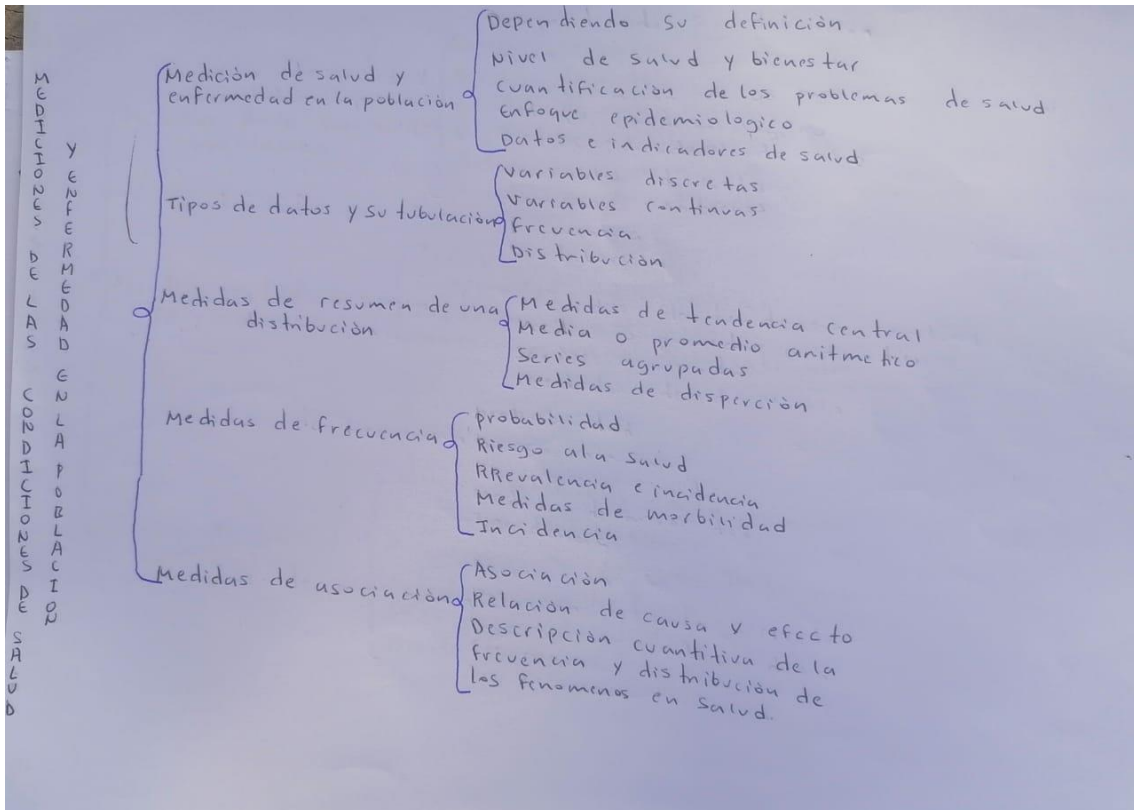 MEDICIONES DE LAS CONDICIONES DE SALUD
Y ENFERMEDAD EN LA POBLACION
Medición de salud y
enfermedad en la población
Dependiendo su definición
Nivel de salud y bienestar
cuantificación de los problemas de salud
Enfoque epidemiologico
Datos e indicadores de salud
Tipos de datos y su tubulación
Variables discretas
Variables continuas
frecuencia
Distribución
Medidas de resumen de una
distribución
Medidas de tendencia central
Media o promedio aritmetico
Series agrupadas
Medidas de disperción
Medidas de frecuencia
probabilidad
Riesgo ala salud
RRevalencia e incidencia
Medidas de morbilidad
Incidencia
Medidas de asociación
Asociación
Relación de causa y efecto
Descripción cuantitiva de la
frecuencia y distribución de
los fenomenos en salud.